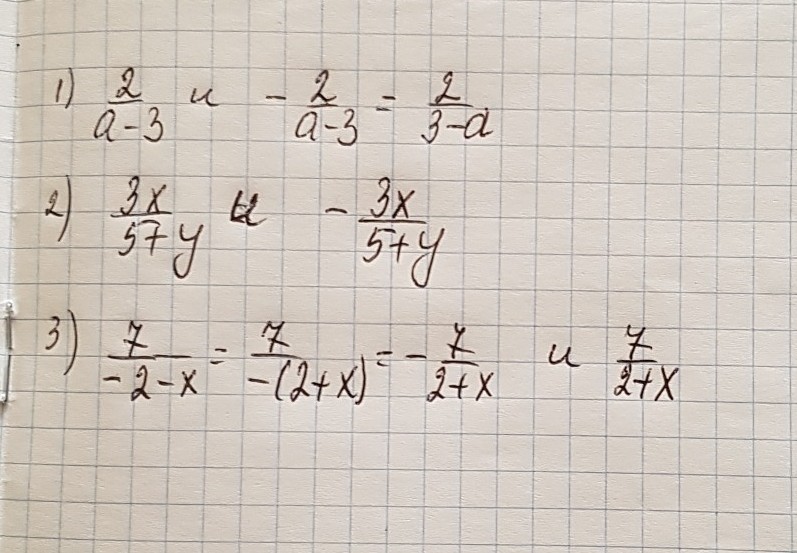 1) 2/(a-3) и -2/(a-3) = 2/(3-a)
2) 3x/(5+y) и -3x/(5+y)
3) 7/(-2-x) = 7/(-(2+x)) = -7/(2+x) и 7/(2+x)